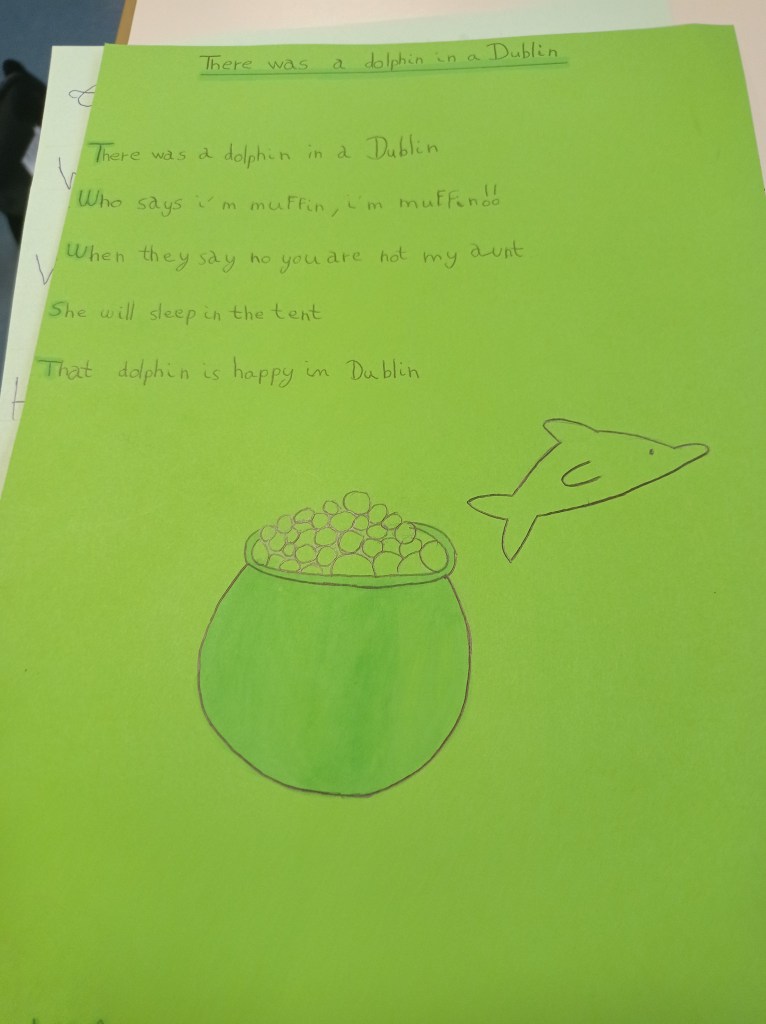 There was a dolphin in a Dublin
There was a dolphin in a Dublin
Who says i'm muffin, i'm muffin!!
When they say no you are not my aunt
She will sleep in the tent
That dolphin is happy in Dublin